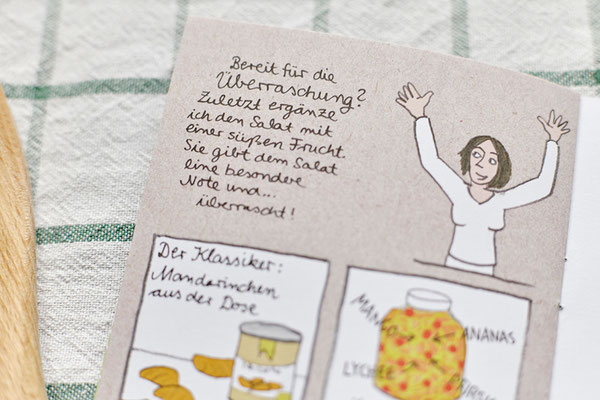 Bereit für die
Überraschung?
Zuletzt ergänze
ich den Salat mit
einer süßen Frucht.
Sie gibt dem Salat
eine besondere
Note und...
überrascht!
Der Klassiker:
Mandarinchen
aus der Dose
MANGO
ANANAS
LYCHEE